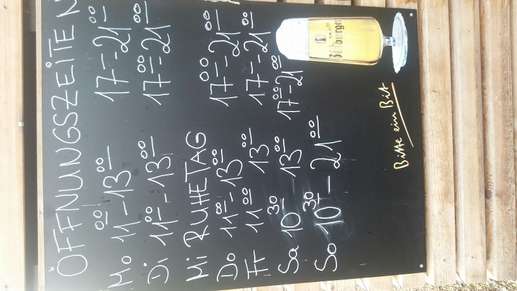 ÖFFNUNGSZEITEN
Mo 11⁰⁰-13⁰⁰ 17⁰⁰-21⁰⁰
Di 11⁰⁰-13⁰⁰ 17⁰⁰-21⁰⁰
Mi RUHETAG
Do 11⁰⁰-13⁰⁰ 17⁰⁰-21⁰⁰
Fr 11⁰⁰ 13⁰⁰ 17⁰⁰-21⁰⁰
Sa 10³⁰-13⁰⁰ 17⁰⁰-21⁰⁰
So 10³⁰-21⁰⁰
Bitburger
Bitte ein Bit